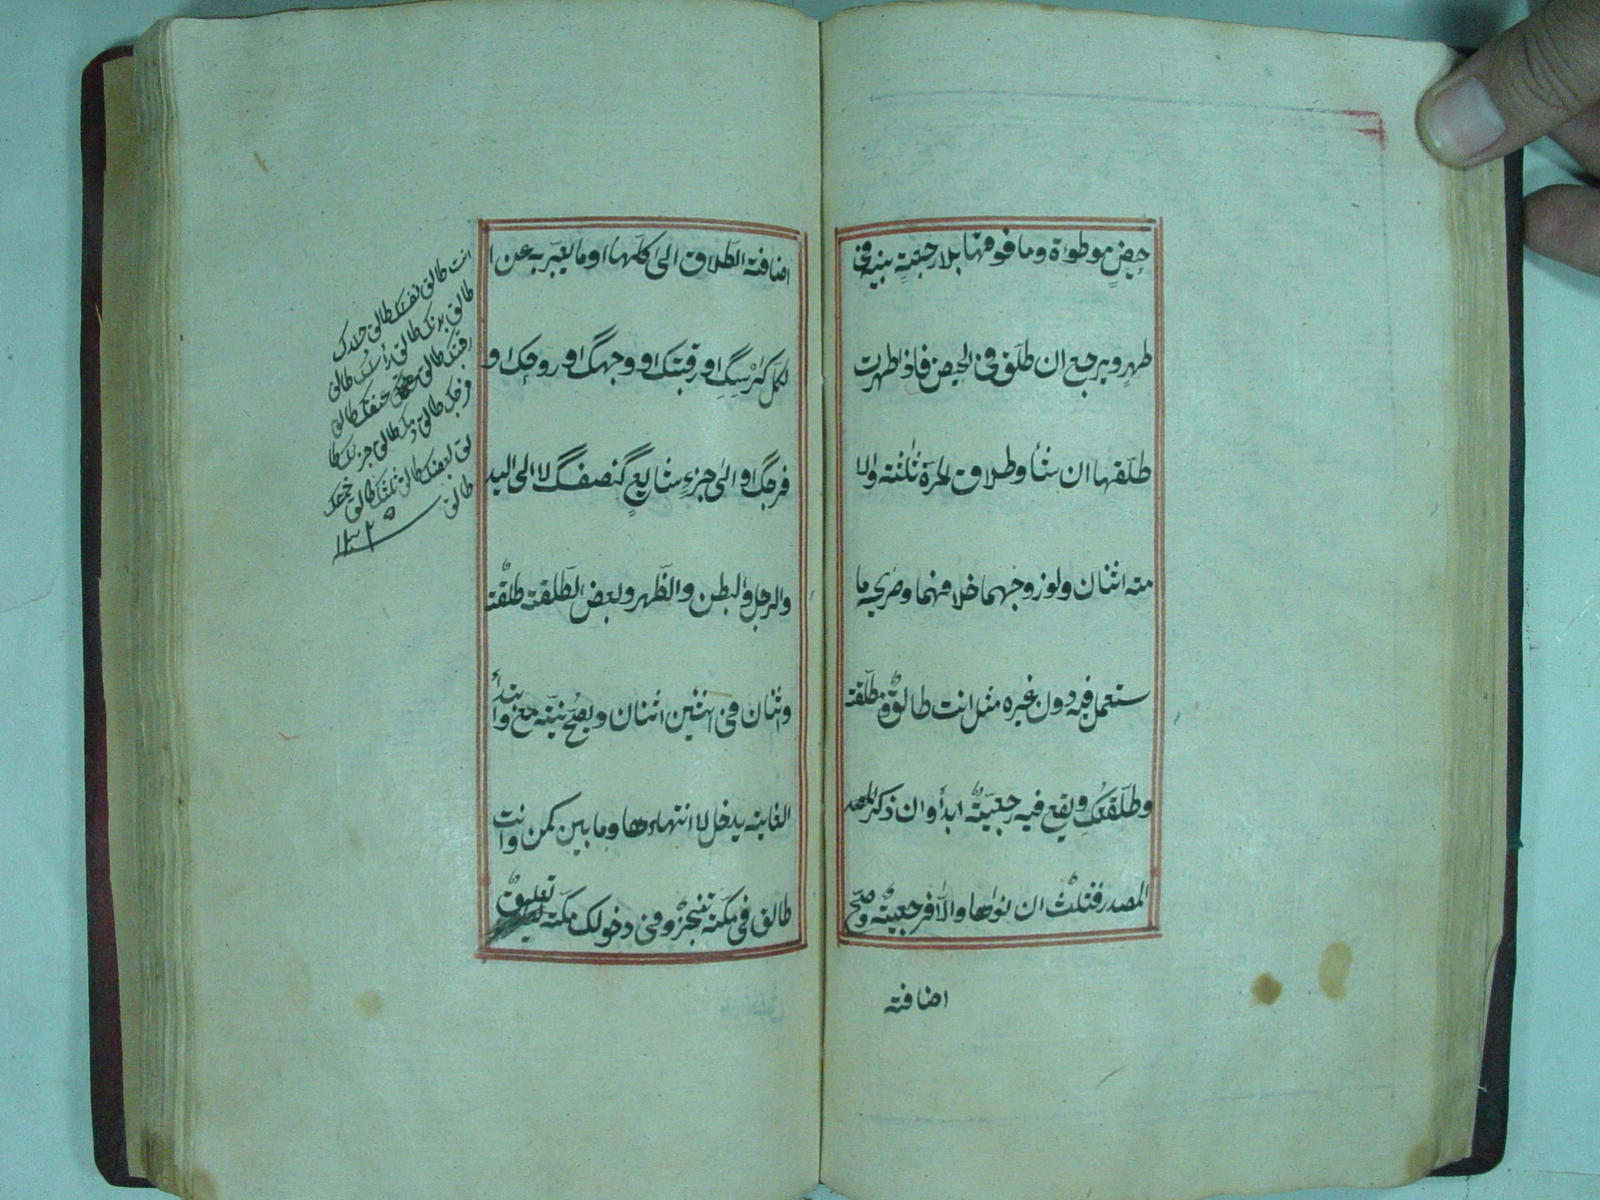 حيض موطوءة وما فوقها بلا رجعة بينه في
طهر ويرجع ان طلق في الحيض فاذا طهرت
طلقها ان شأ وطلاق الحرة ثلثة والا
مته اثنان ولو زوجهما خلافهما وصريحه ما
ستعمل فيه دون غيره مثل انت طالق ومطلقة
وطلقتك ويقع فيه رجعية ابدأ وان ذكر المصد
المصدر فثلث ان نواها والا فرجعية وصح
اضافته
اضافته الطلاق الى كلها او ما يعبر به عن ا
لكل كرأسك او رقبتك او وجهك او روحك او
فرجك او الى جزء شايع كنصفك لا الى اليد
والرجل والبطن والظهر وبعض الطلقة طلقة
واثنان في اثنين اثنان ويصح نيته مع وابتدأ
الغاية يدخل لا انتهاءها وما بين كمن وانت
طالق في مكة تنجز وفي دخولك مكة تعليق
انت طالق نفسك طالق جلدك
طالق بدنك طالق رأسك طالق
رقبتك طالق عنقك طالق
فرجك طالق دمك طالق جزئك طا
لق نصفك طالق ثلثك طالق
طالق ١٢